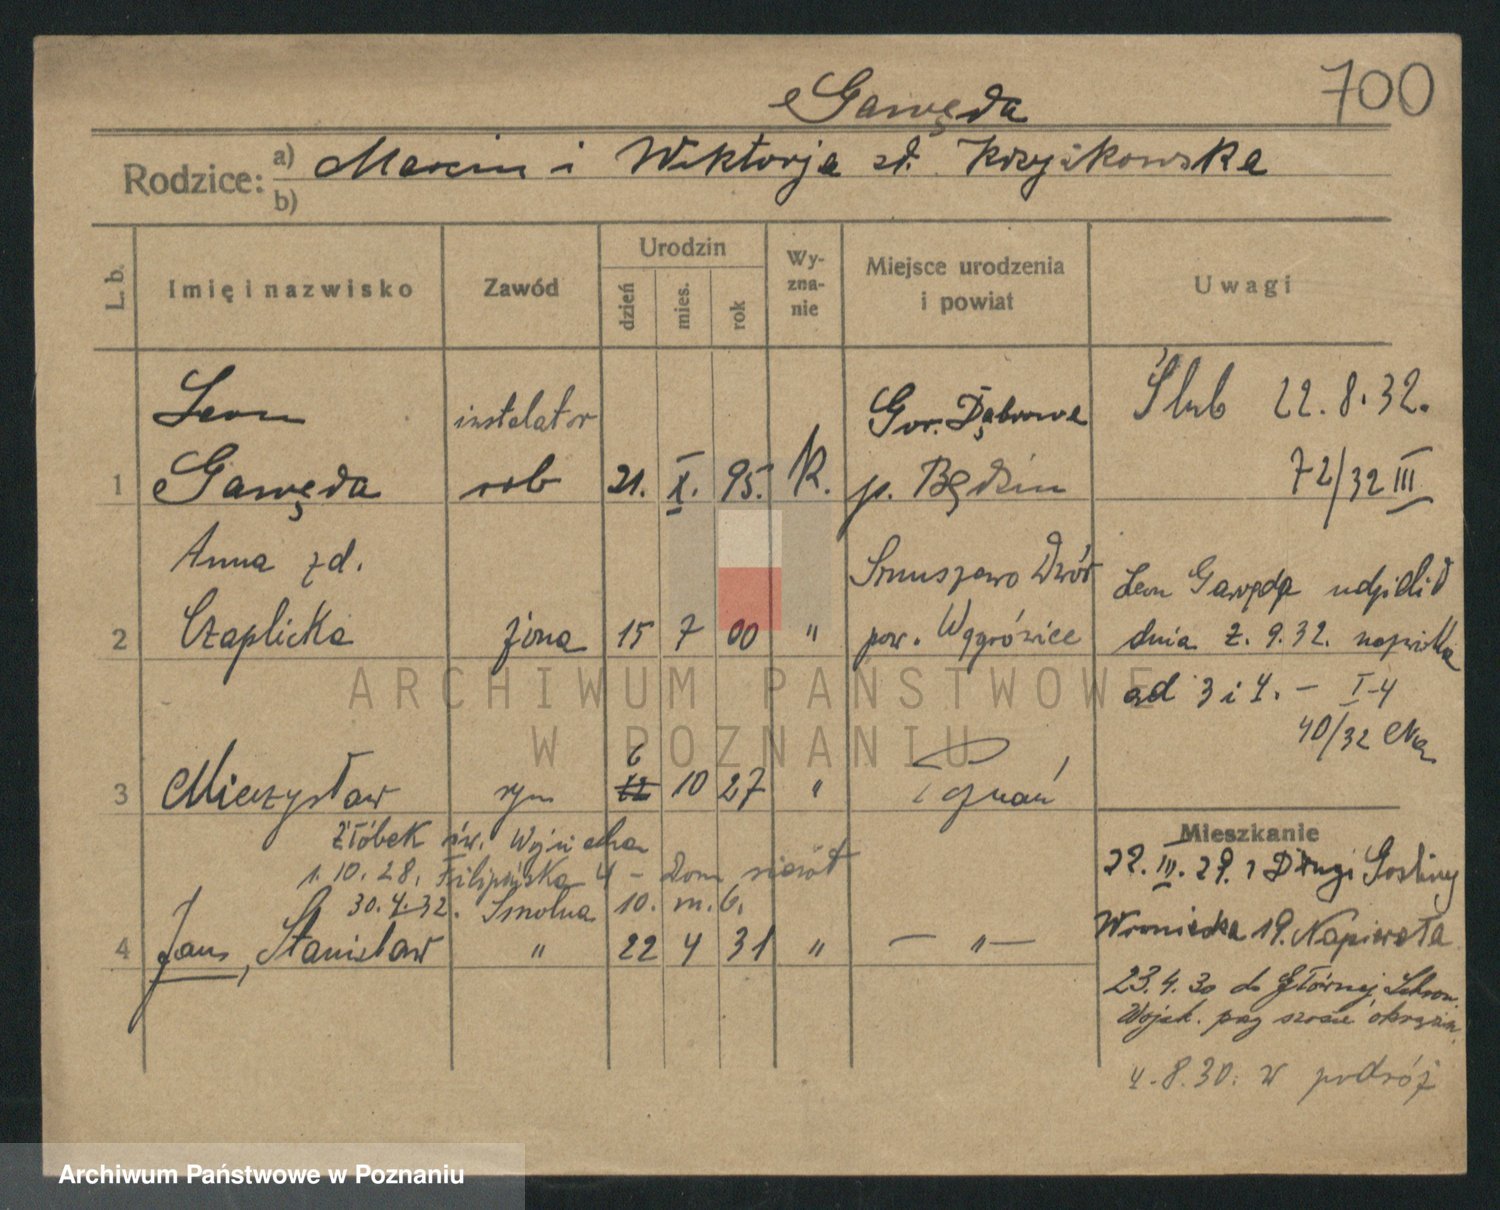 700
Gawęda
Rodzice: a) Marcin i Wiktorja zd. Krzyżkowska
b)
L. b. Imię i nazwisko Zawód Urodzin dzień mies. rok Wyznanie Miejsce urodzenia i powiat Uwagi
Leon instalator Gór. Dąbrowa Ślub 22.8.32.
1 Gawęda rob 21. X. 95. k. p. Będzin 72/32 III
Anna zd. Dwór Leon Gawęda
2 Czaplicka żona 15 7 00 " pow. Wągrówiec dnia 2.9.32. nazwiska
od 3 i 4. – I-4
40/32
6
3 Mieczysław syn 12 10 27 " Poznań
Żłóbek św. Wojciecha
1.10.28. Filipińska 4 – Dom sierót
30.4.32. Smolna 10. m. 6.
4 Jan, Stanisław " 22 4 31 " – " –
Mieszkanie
22.III.29. z Długi Gośliny
Wroniecka 19. Napierała
23.4.30 do Głównej,
Wojsk. przy szosie
4.8.30. w podróż
ARCHIWUM PAŃSTWOWE
W POZNANIU
Archiwum Państwowe w Poznaniu